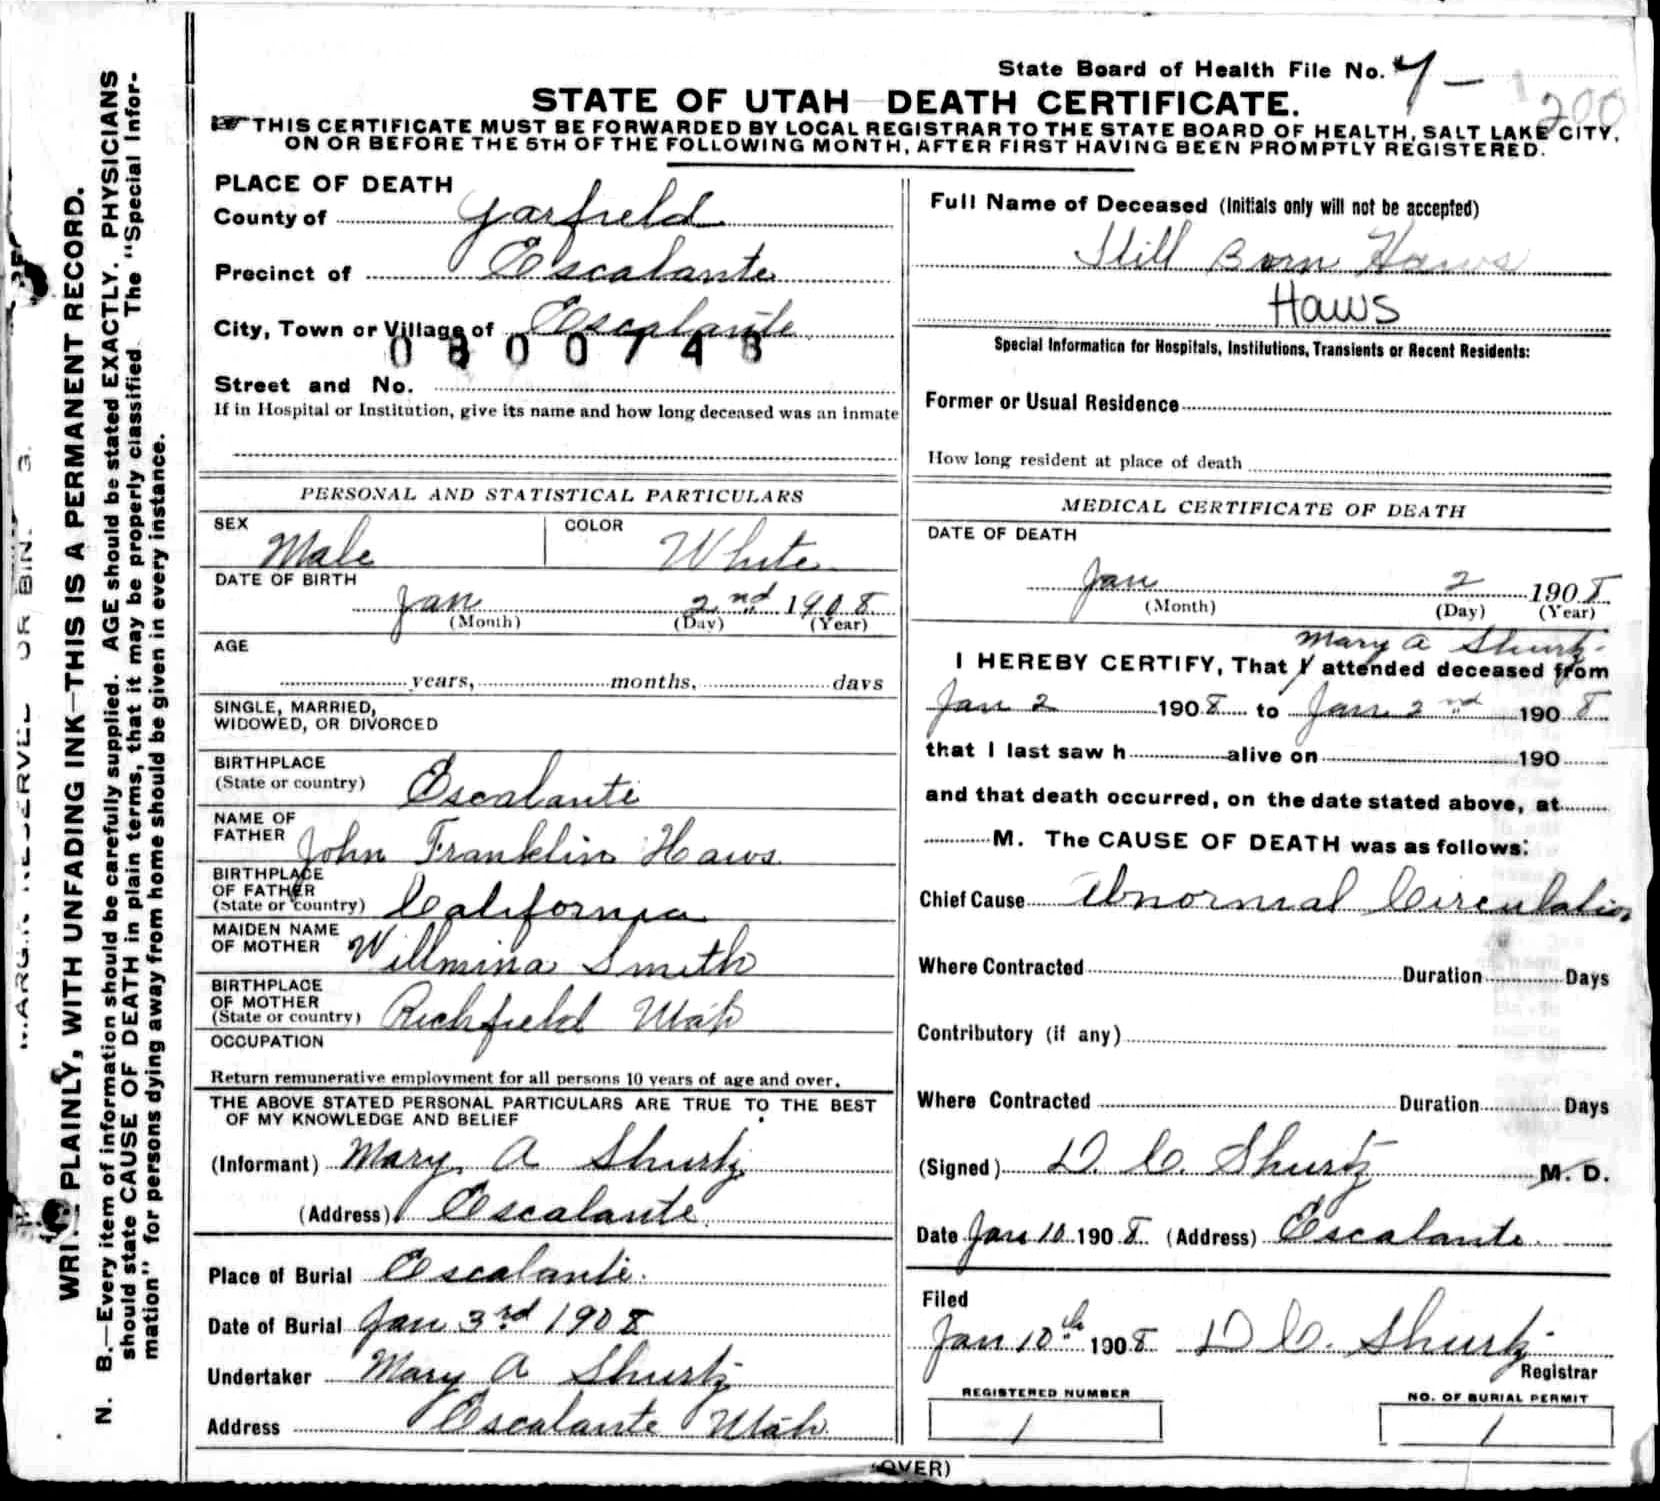 State Board of Health File No. 7 –
200
STATE OF UTAH DEATH CERTIFICATE.
THIS CERTIFICATE MUST BE FORWARDED BY LOCAL REGISTRAR TO THE STATE BOARD OF HEALTH, SALT LAKE CITY,
ON OR BEFORE THE 5TH OF THE FOLLOWING MONTH, AFTER FIRST HAVING BEEN PROMPTLY REGISTERED.
WRI PLAINLY, WITH UNFADING INK—THIS IS A PERMANENT RECORD.
N. B.—Every item of information should be carefully supplied. AGE should be stated EXACTLY. PHYSICIANS
should state CAUSE OF DEATH in plain terms, that it may be properly classified. The "Special Infor-
mation" for persons dying away from home should be given in every instance.
PLACE OF DEATH
County of Garfield
Precinct of Escalante
City, Town or Village of Escalante
Street and No.
If in Hospital or Institution, give its name and how long deceased was an inmate
PERSONAL AND STATISTICAL PARTICULARS
SEX Male COLOR White
DATE OF BIRTH
Jan 2nd 1908
(Month) (Day) (Year)
AGE
years, months, days
SINGLE, MARRIED,
WIDOWED, OR DIVORCED
BIRTHPLACE
(State or country) Escalante
NAME OF
FATHER John Franklin Haws
BIRTHPLACE
OF FATHER
(State or country) California
MAIDEN NAME
OF MOTHER Willmina Smith
BIRTHPLACE
OF MOTHER
(State or country) Richfield Utah
OCCUPATION
Return remunerative employment for all persons 10 years of age and over.
THE ABOVE STATED PERSONAL PARTICULARS ARE TRUE TO THE BEST
OF MY KNOWLEDGE AND BELIEF
(Informant) Mary A Shurtz
(Address) Escalante
Place of Burial Escalante.
Date of Burial Jan 3rd 1908
Undertaker Mary A Shurtz
Address Escalante Utah
Full Name of Deceased (Initials only will not be accepted)
Still Born Haws
Haws
Special Information for Hospitals, Institutions, Transients or Recent Residents:
Former or Usual Residence
How long resident at place of death
MEDICAL CERTIFICATE OF DEATH
DATE OF DEATH
Jan 2 1908
(Month) (Day) (Year)
Mary A Shurtz
I HEREBY CERTIFY, That I attended deceased from
Jan 2 1908 to Jan 2nd 1908
that I last saw h alive on 190
and that death occurred, on the date stated above, at
M. The CAUSE OF DEATH was as follows:
Chief Cause Abnormal Circulation
Where Contracted Duration Days
Contributory (if any)
Where Contracted Duration Days
(Signed) D. C. Shurtz M. D.
Date Jan 10 1908 (Address) Escalante
Filed
Jan 10th 1908 D C. Shurtz
Registrar
REGISTERED NUMBER
1
NO. OF BURIAL PERMIT
1
(OVER)